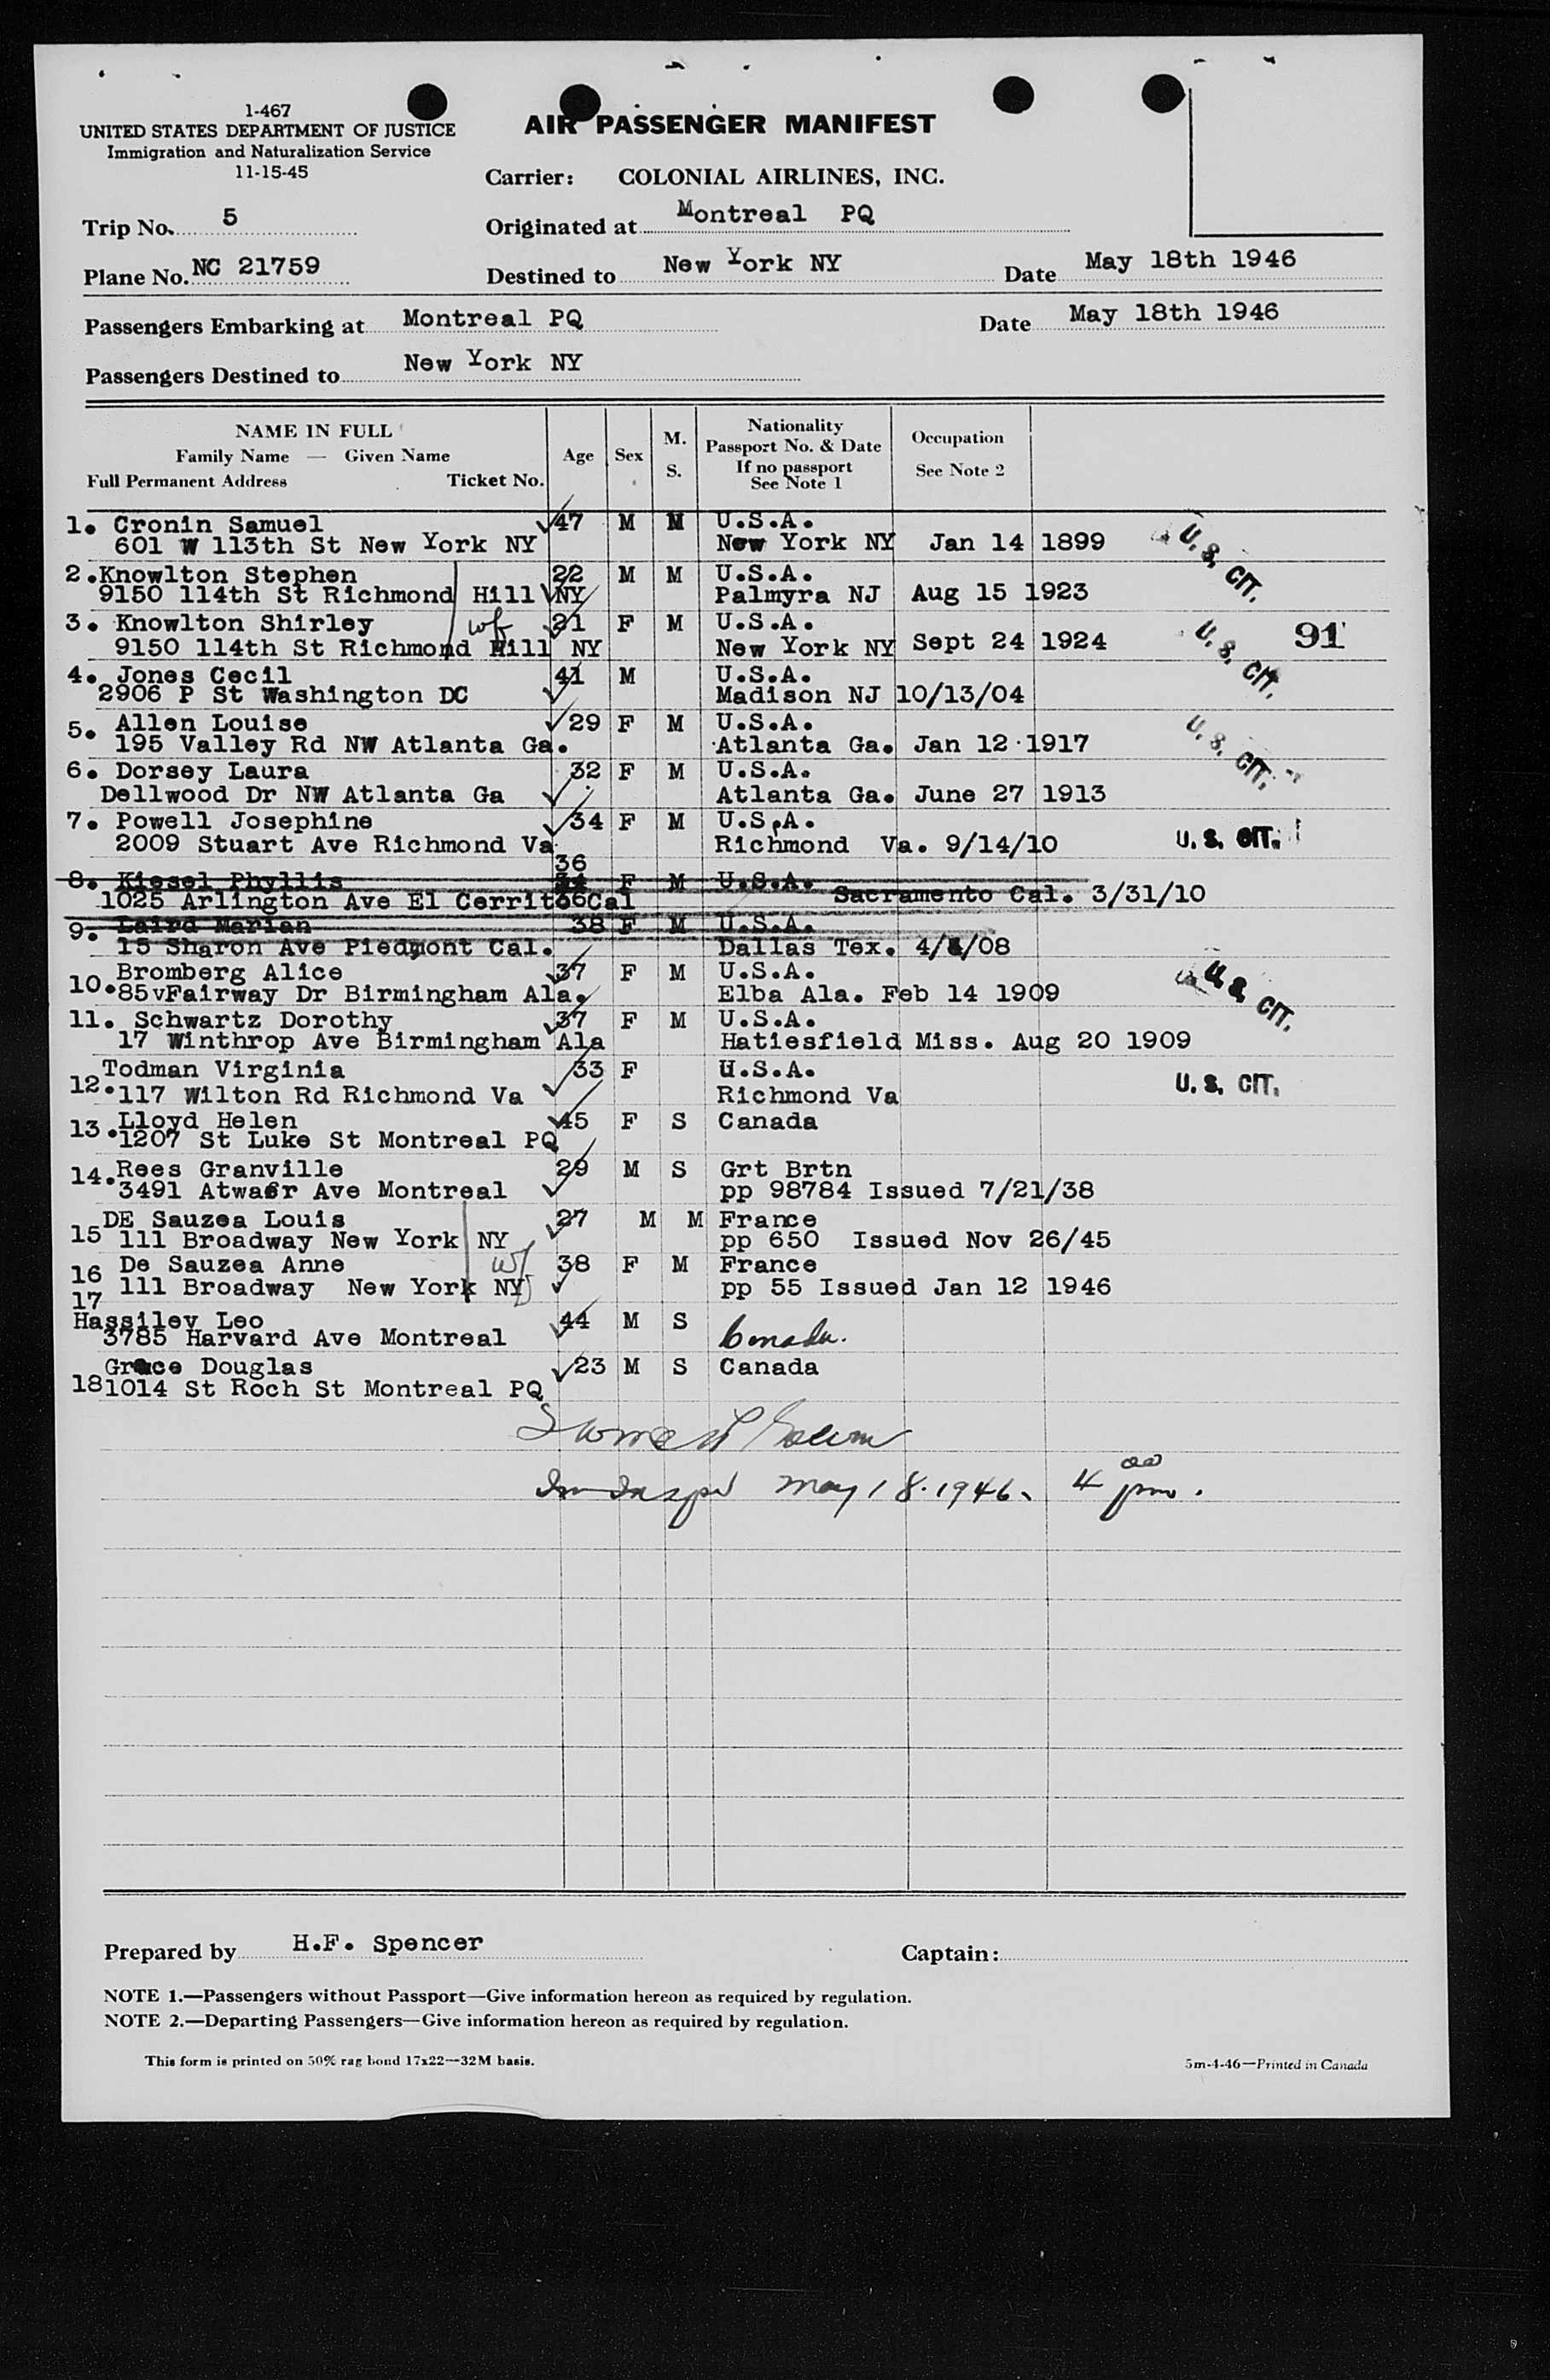 1-467
UNITED STATES DEPARTMENT OF JUSTICE
Immigration and Naturalization Service
11-15-45
AIR PASSENGER MANIFEST
Carrier: COLONIAL AIRLINES, INC.
Trip No. 5
Originated at Montreal PQ
Plane No. NC 21759
Destined to New York NY
Date May 18th 1946
Passengers Embarking at Montreal PQ
Date May 18th 1946
Passengers Destined to New York NY
NAME IN FULL
Family Name — Given Name
Full Permanent Address Ticket No.
Age
Sex
M.
S.
Nationality
Passport No. & Date
If no passport
See Note 1
Occupation
See Note 2
1. Cronin Samuel 47 M M U.S.A.
601 W 113th St New York NY New York NY Jan 14 1899 U. S. CIT.
2. Knowlton Stephen 22 M M U.S.A.
9150 114th St Richmond Hill NY Palmyra NJ Aug 15 1923
3. Knowlton Shirley wf 21 F M U.S.A. 91
9150 114th St Richmond Hill NY New York NY Sept 24 1924 U. S. CIT.
4. Jones Cecil 41 M U.S.A.
2906 P St Washington DC Madison NJ 10/13/04
5. Allen Louise 29 F M U.S.A.
195 Valley Rd NW Atlanta Ga. Atlanta Ga. Jan 12 1917 U. S. CIT.
6. Dorsey Laura 32 F M U.S.A.
Dellwood Dr NW Atlanta Ga Atlanta Ga. June 27 1913
7. Powell Josephine 34 F M U.S.A.
2009 Stuart Ave Richmond Va Richmond Va. 9/14/10 U. S. CIT.
36
8. Kiesel Phyllis F M U.S.A.
1025 Arlington Ave El Cerrito Cal Sacramento Cal. 3/31/10
9. Laird Marian 38 F M U.S.A.
15 Sharon Ave Piedmont Cal. Dallas Tex. 4/ /08
10. Bromberg Alice 37 F M U.S.A.
85vFairway Dr Birmingham Ala. Elba Ala. Feb 14 1909 U. S. CIT.
11. Schwartz Dorothy 37 F M U.S.A.
17 Winthrop Ave Birmingham Ala Hatiesfield Miss. Aug 20 1909
12. Todman Virginia 33 F U.S.A.
117 Wilton Rd Richmond Va Richmond Va U. S. CIT.
13. Lloyd Helen 45 F S Canada
1207 St Luke St Montreal PQ
14. Rees Granville 29 M S Grt Brtn
3491 Atwaer Ave Montreal pp 98784 Issued 7/21/38
15 DE Sauzea Louis 27 M M France
111 Broadway New York NY pp 650 Issued Nov 26/45
16 De Sauzea Anne wf 38 F M France
111 Broadway New York NY pp 55 Issued Jan 12 1946
17
Hassiley Leo 44 M S Canada.
3785 Harvard Ave Montreal
Grace Douglas 23 M S Canada
18 1014 St Roch St Montreal PQ
Im Inspr May 18. 1946. 4 00 pm.
Prepared by H.F. Spencer
Captain:
NOTE 1.—Passengers without Passport—Give information hereon as required by regulation.
NOTE 2.—Departing Passengers—Give information hereon as required by regulation.
This form is printed on 50% rag bond 17x22—32M basis.
5m-4-46—Printed in Canada